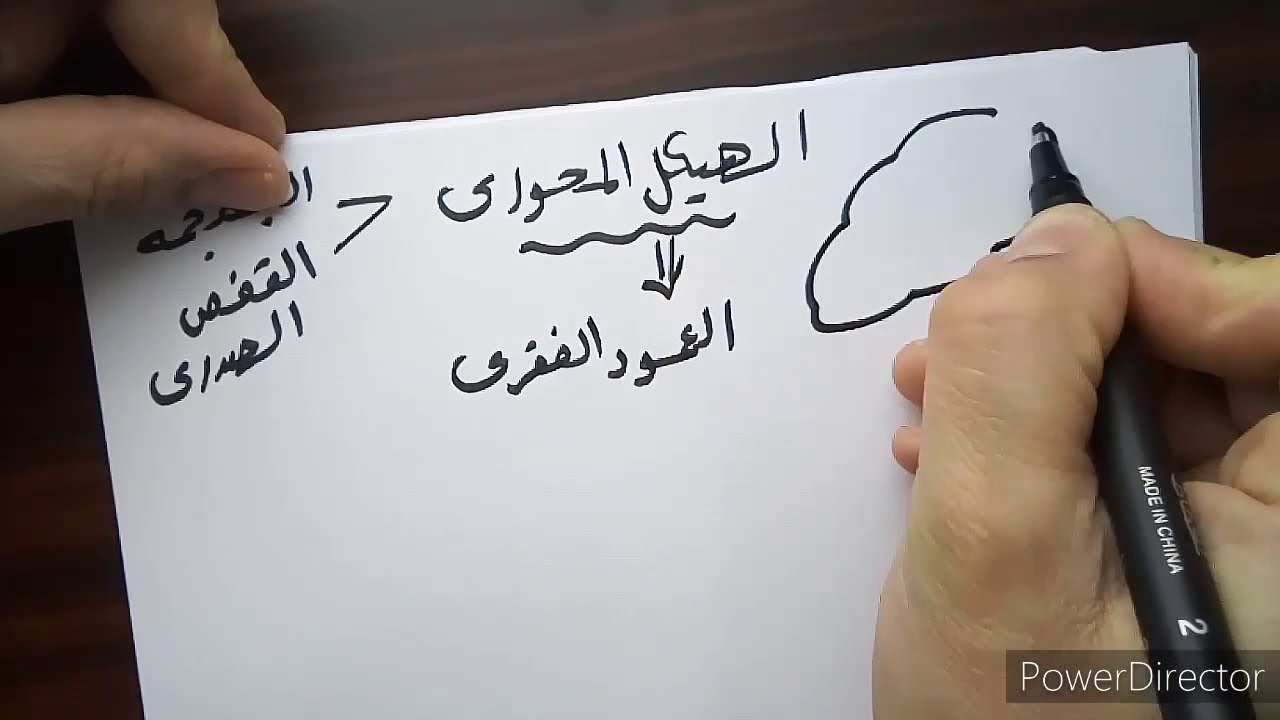 الهيكل المحورى
العمود الفقرى
الجمجمه
القفص
الصدرى
MADE IN CHINA
2
PowerDirector